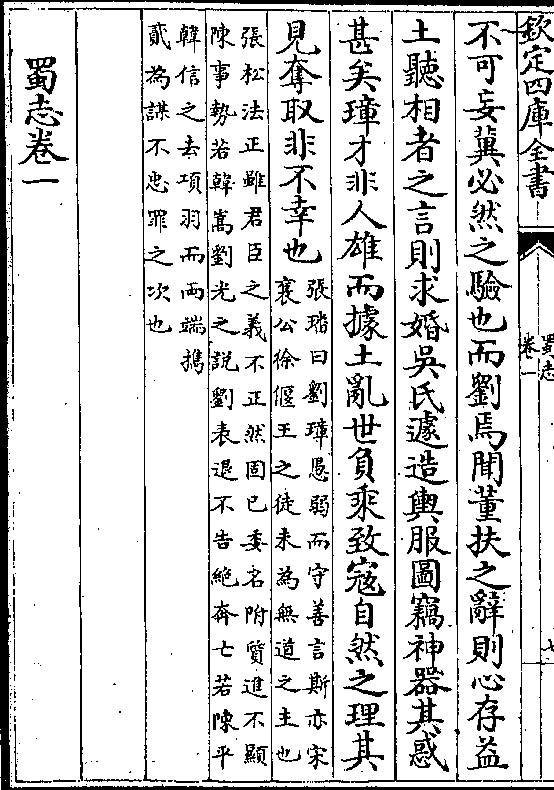 欽定四庫全書
蜀志
卷一
七
不可妄冀必然之驗也而劉焉聞董扶之辭則心存益
土聽相者之言則求婚吳氏遽造輿服圖竊神器其惑
甚矣璋才非人雄而據土亂世負乘致寇自然之理其
見奪取非不幸也
張璠曰劉璋愚弱而守善言斯亦宋
襄公徐偃王之徒未為無道之主也
張松法正雖君臣之義不正然固已委名附質進不顯
陳事勢若韓嵩劉光之說劉表退不告絶奔亡若陳平
韓信之去項羽而两端攜
貳為謀不忠罪之次也
蜀志卷一